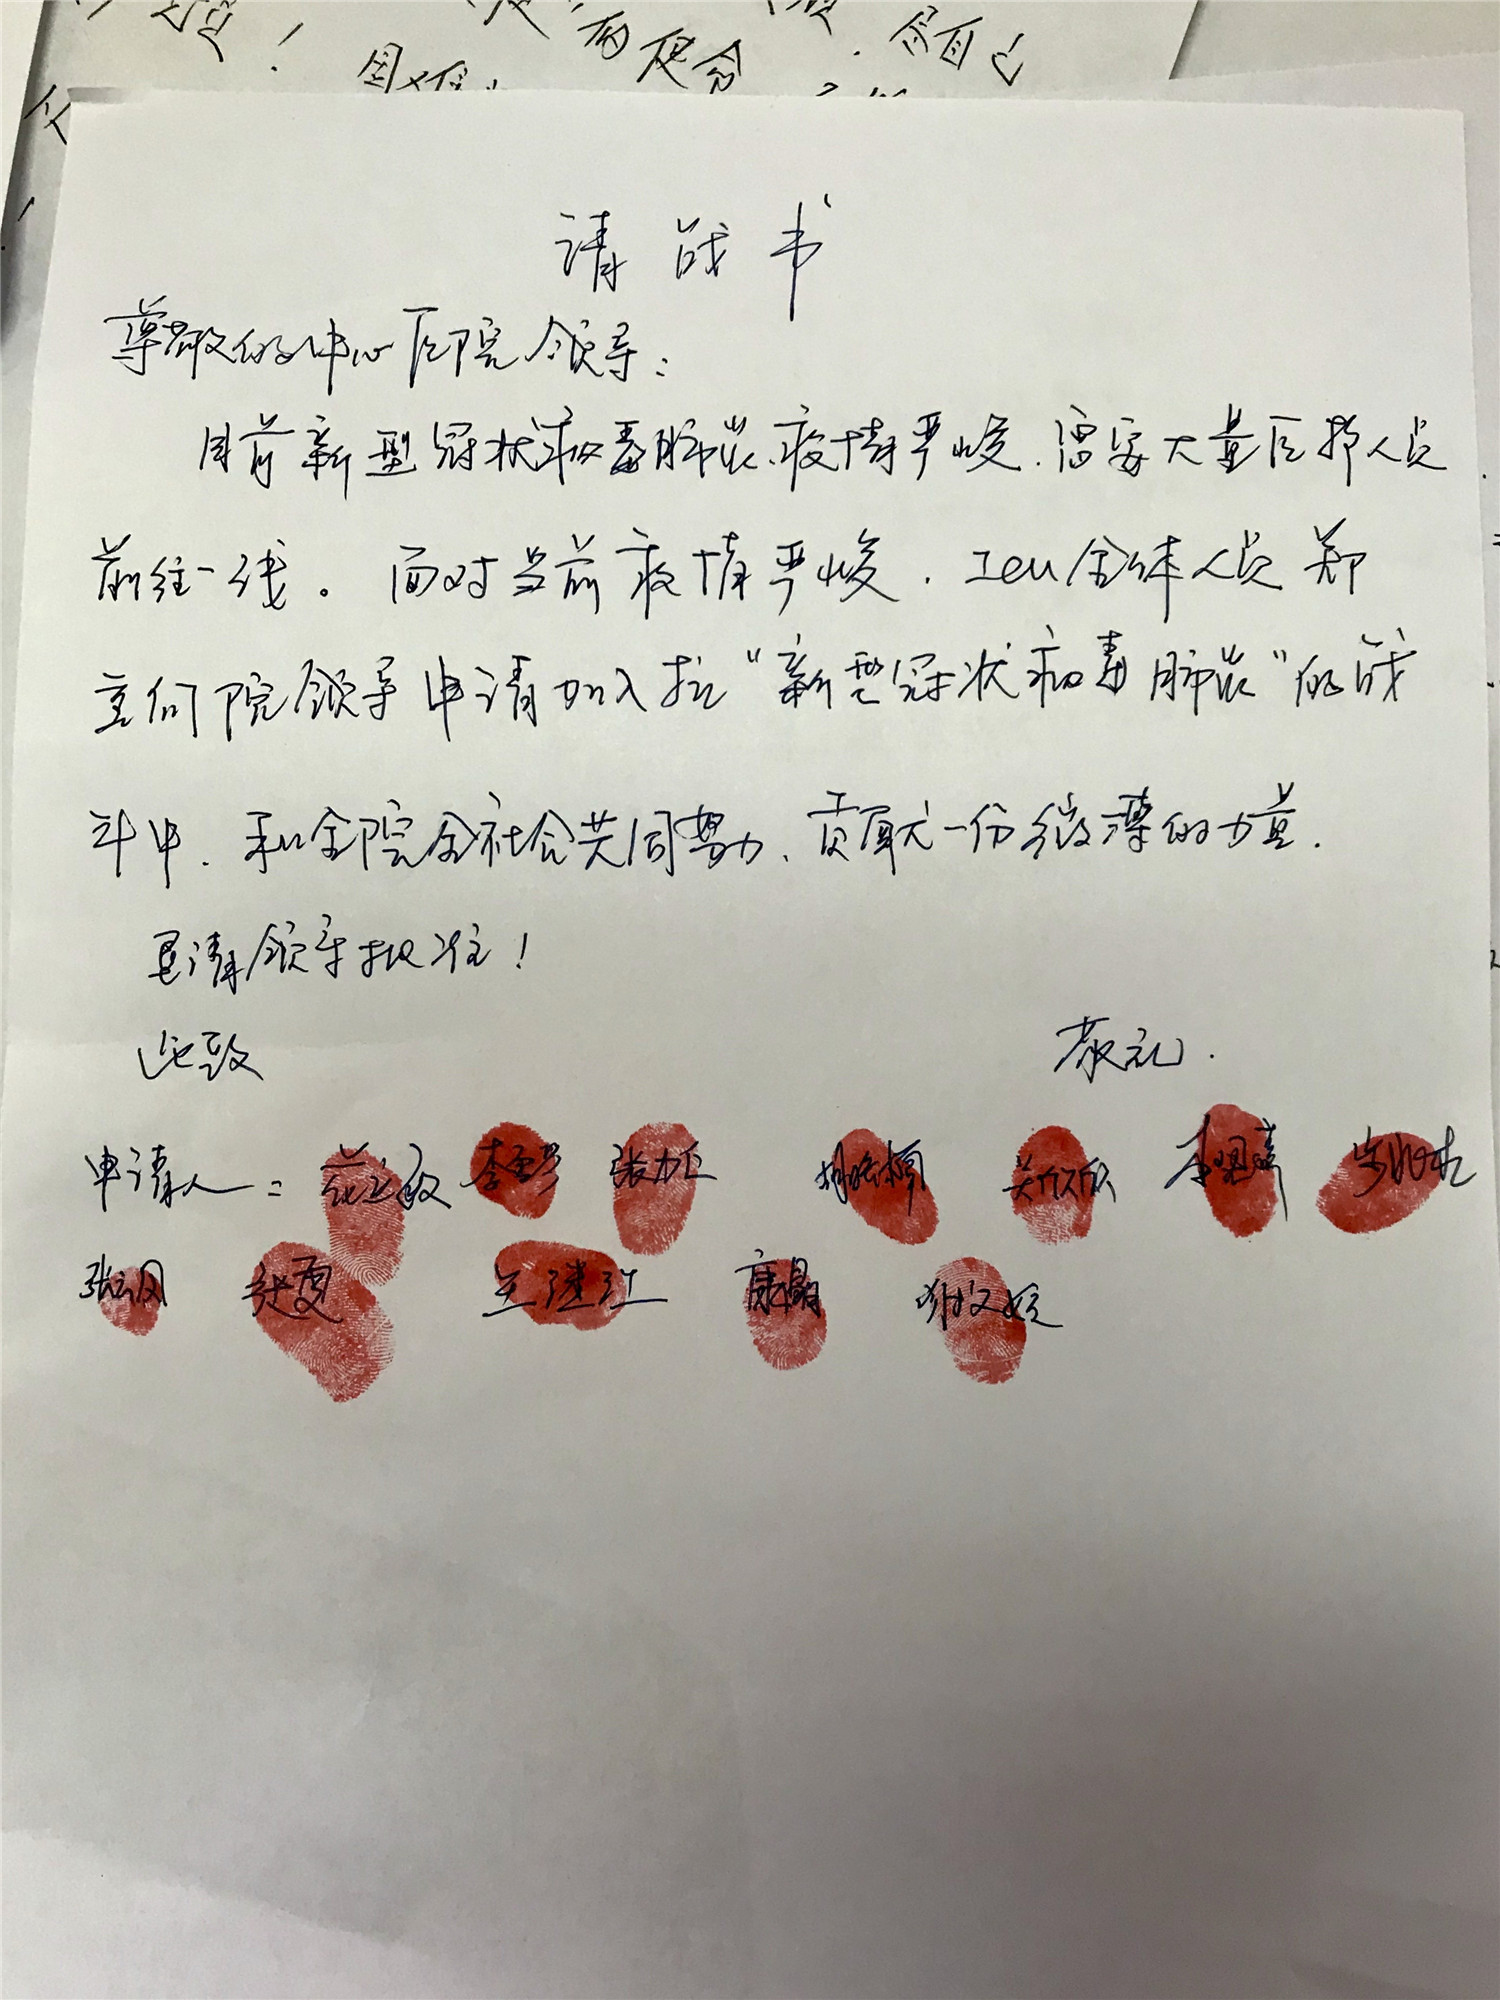 自己
请战书
尊敬的中心医院领导：
目前新型冠状病毒肺炎疫情严峻，需要大量医护人员
前往一线。面对当前疫情严峻，Icu全体人员郑
重向院领导申请加入抗“新型冠状病毒肺炎”的战
斗中，和全院全社会共同努力，贡献一份微薄的力量.
恳请领导批准！
此致 敬礼.
申请人：
张夏 康晶